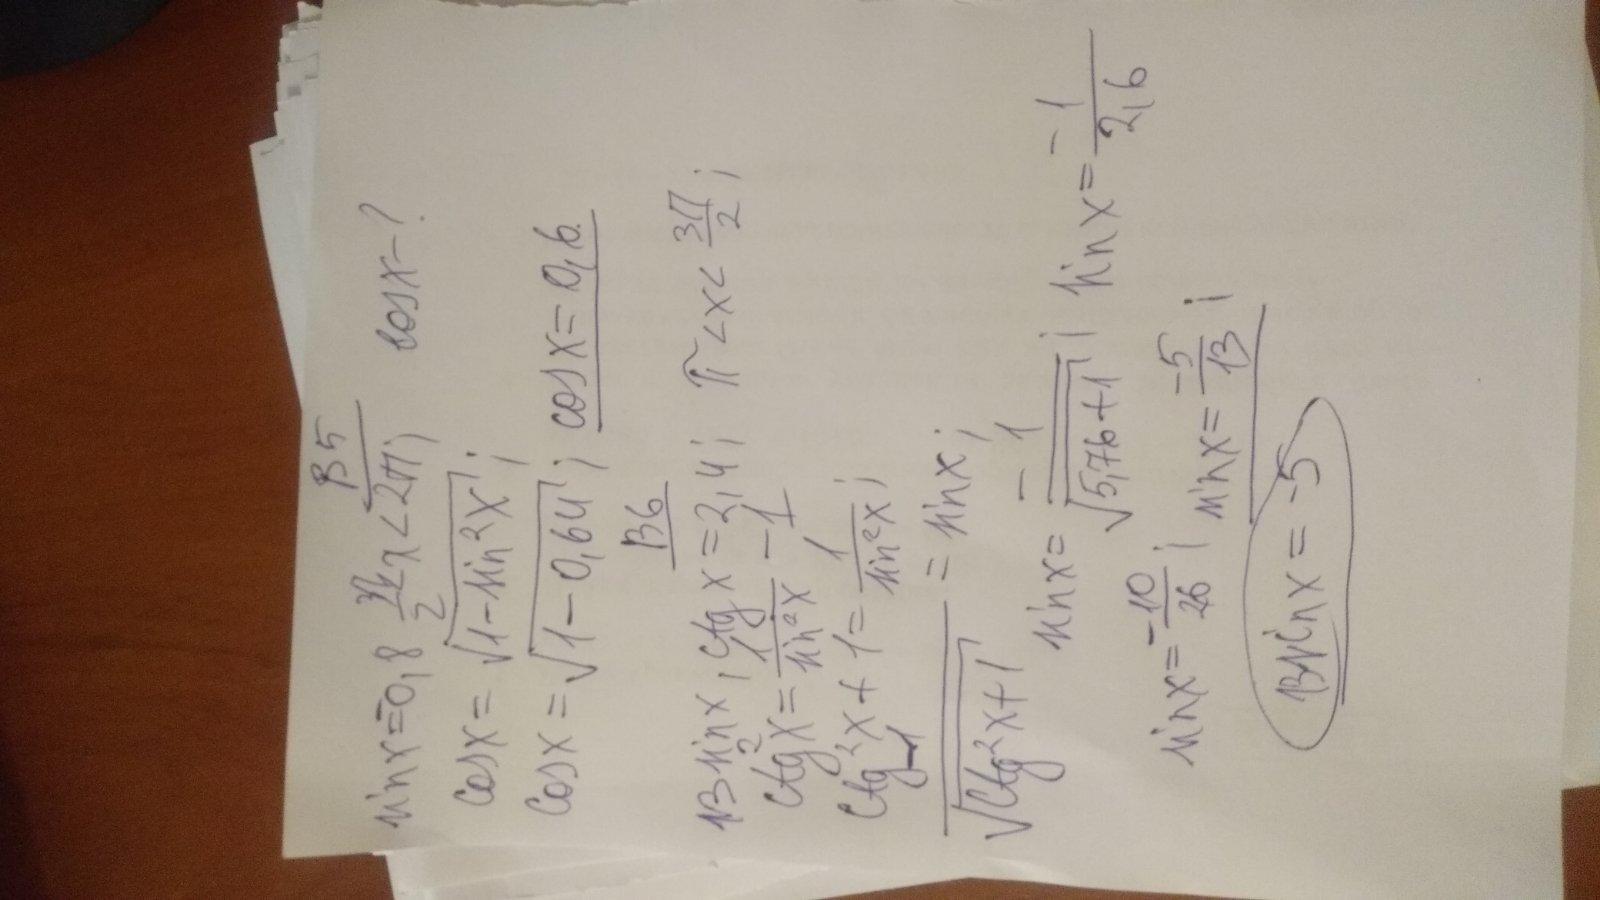 B5
sinx=-0,8 3π/2<x<2π; cosx-?
cosx=√(1-sin²x);
cosx=√(1-0,64); cosx=0,6.
B6
13sinx, ctgx=2,4; π<x<3π/2;
ctg²x=1/sin²x-1
ctg²x+1=1/sin²x;
-1/√(ctg²x+1)=sinx;
sinx=-1/√(5,76+1); sinx=-1/2,6
sinx=-10/26; sinx=-5/13;
13sinx=-5